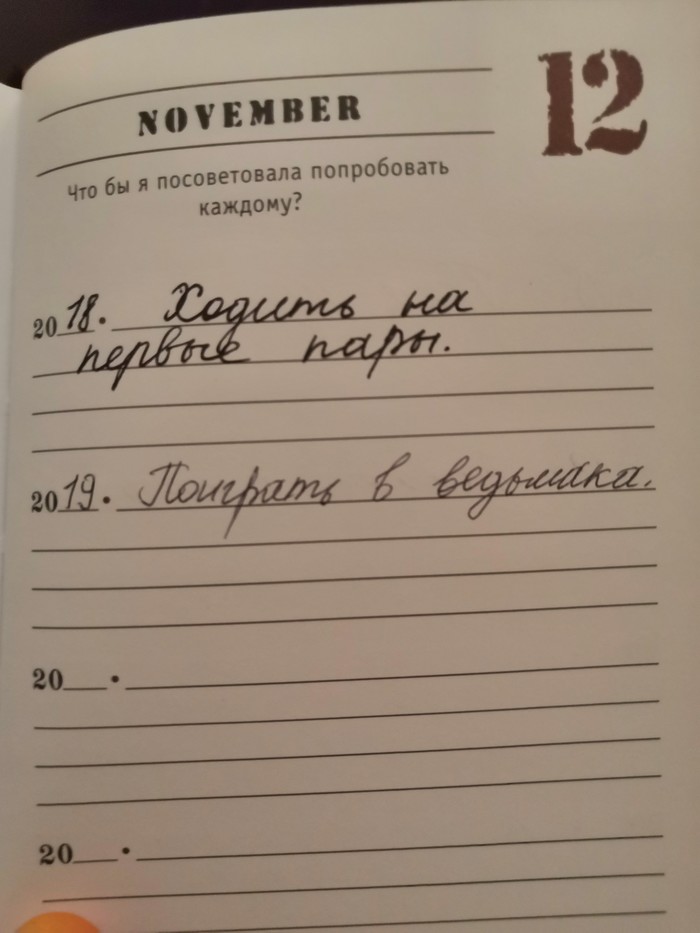 NOVEMBER
12
Что бы я посоветовала попробовать
каждому?
2018. Ходить на
первые пары.
2019. Поиграть в ведьмака.
20__.
20__.